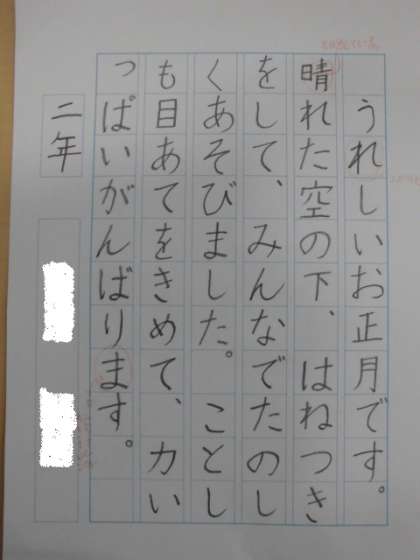 うれしいお正月です。
晴れた空の下、はねつき
をして、みんなでたのし
くあそびました。ことし
も目あてをきめて、力い
っぱいがんばります。
二年